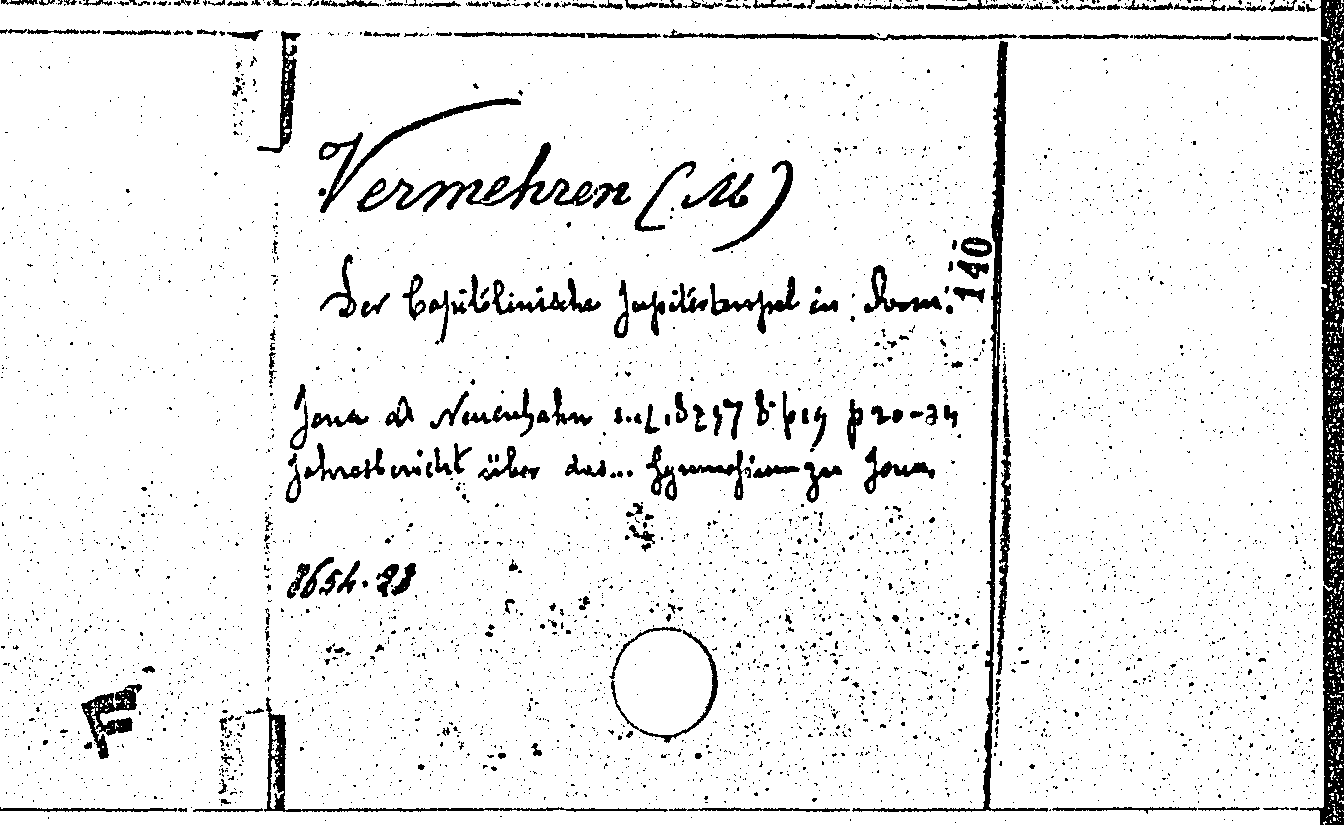 Vermehren (M)
140
Der Capitolinische Jupitertempel in Rom.
Jena Neuenhahn p 20-34
Jahresbericht über das... Gymnasium zu Jena.
8654.28
F